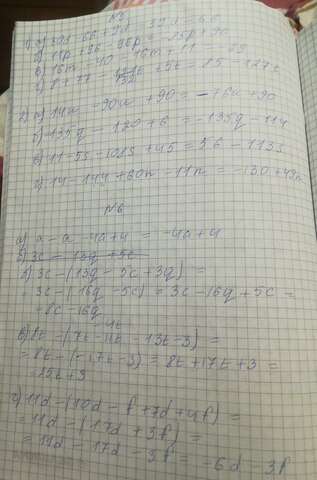 N5
1) а) 30d - 66 + 9d = 39d - 66
б) 11p + 36 - 36p = -25p + 90
в) 16m - 40 - 16m + 11 = -29
г) 8 + 77 - 25t = 85 - 127t
2) а) 14a - 90a + 90 = -76a + 90
б) -135q - 120 + 6 = -135q - 114
в) 11 - 5s - 108s + 45 = 56 - 113s
г) 14 - 144 + 60n - 11n = -130 + 49n
N6
а) a - a - 4a + 4 = -4a + 4
б) 3c - 13q + 5c
б) 3c - (13q - 5c + 3q) =
3c - (16q - 5c) = 3c - 16q + 5c =
= 8c - 16q
в) 8t - (7t - 11t - 13t - 3) =
= 8t - (-17t - 3) = 8t + 17t + 3 =
= 25t + 3
г) 11d - (10d - f + 7d + 4f) =
= 11d - (17d + 3f) =
= 11d - 17d - 3f = -6d 3f